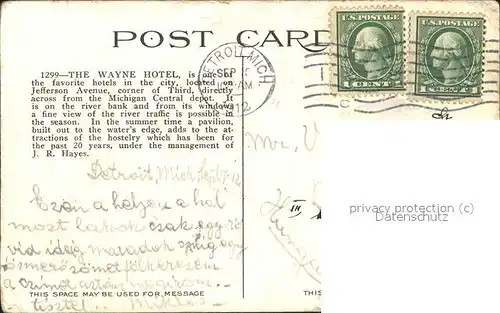 POST CARD
1299—THE WAYNE HOTEL, is one of
the favorite hotels in the city, located on
Jefferson Avenue, corner of Third, directly
across from the Michigan Central depot. It
is on the river bank and from its windows
a fine view of the river traffic is possible in
the season. In the summer time a pavilion,
built out to the water's edge, adds to the at-
tractions of the hostelry which has been for
the past 20 years, under the management of
J. R. Hayes.
DETROIT, MICH.
SEP
AM
1912
U.S. POSTAGE
U.S. POSTAGE
Detroit, Mich Sept
Ezen a helyen a hol
most lakok csak egy rö
vid ideig maradok
ismerősömet fölkeresem
a czimet
tisztel Miklós
Mr. V
privacy protection (c)
Datenschutz
THIS SPACE MAY BE USED FOR MESSAGE
THIS